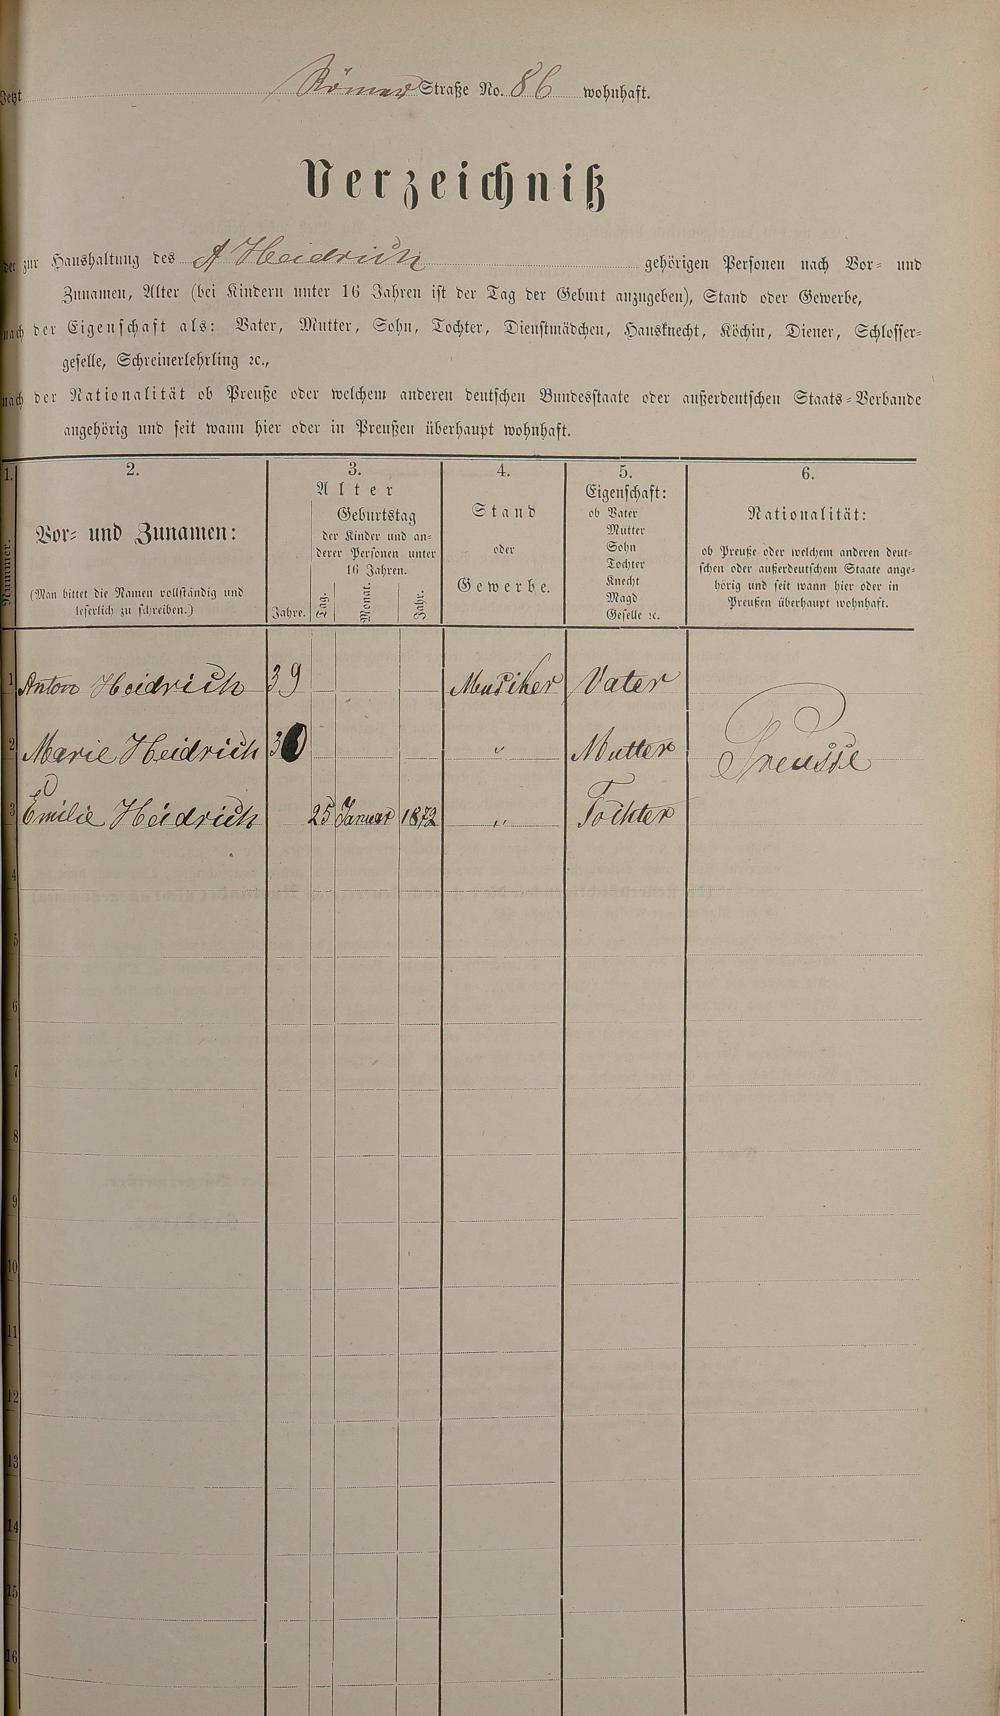 Jetzt Römer Straße No. 86 wohnhaft.
Verzeichniß
der zur Haushaltung des A Heidrich gehörigen Personen nach Vor- und
Zunamen, Alter (bei Kindern unter 16 Jahren ist der Tag der Geburt anzugeben), Stand oder Gewerbe,
nach der Eigenschaft als: Vater, Mutter, Sohn, Tochter, Dienstmädchen, Hausknecht, Köchin, Diener, Schlosser-
geselle, Schreinerlehrling ꝛc.,
nach der Nationalität ob Preuße oder welchem anderen deutschen Bundesstaate oder außerdeutschen Staats-Verbande
angehörig und seit wann hier oder in Preußen überhaupt wohnhaft.
1.
Nummer.
2.
Vor- und Zunamen:
(Man bittet die Namen vollständig und
leserlich zu schreiben.)
3.
Alter
Jahre.
Geburtstag
der Kinder und an-
derer Personen unter
16 Jahren.
Tag. Monat. Jahr.
4.
Stand
oder
Gewerbe.
5.
Eigenschaft:
ob Vater
Mutter
Sohn
Tochter
Knecht
Magd
Geselle ꝛc.
6.
Nationalität:
ob Preuße oder welchem anderen deut-
schen oder außerdeutschem Staate ange-
hörig und seit wann hier oder in
Preußen überhaupt wohnhaft.
1 Anton Heidrich 39 Musiker Vater
2 Marie Heidrich " Mutter Preusse
3 Emilie Heidrich 25 Januar 1872 " Tochter
4
5
6
7
8
9
10
11
12
13
14
15
16